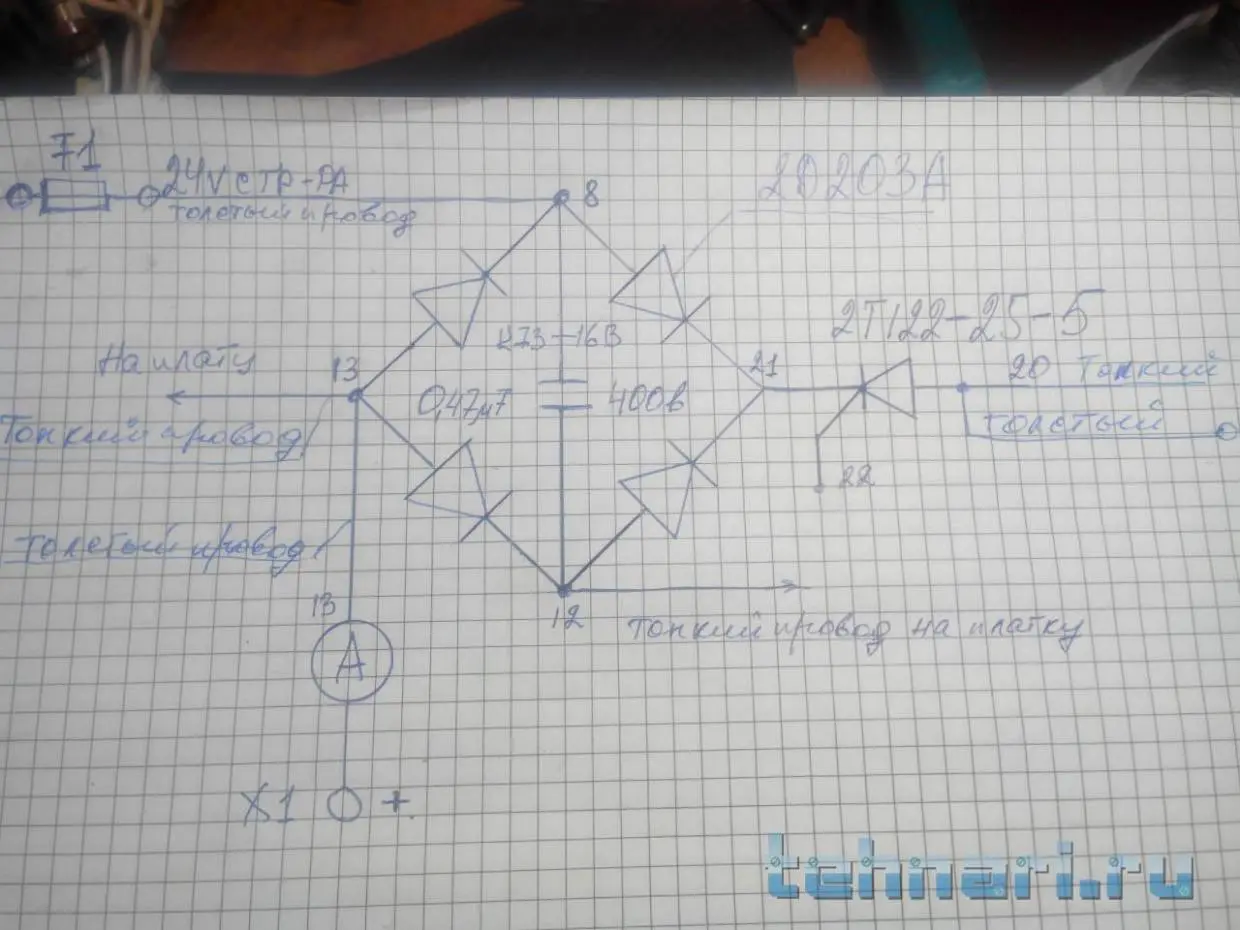 71
24V с ТР-РА
толстый провод
8
2D203А
2Т122-25-5
К73-16В
На плату
13
21
20 Тонкий
0,47μ7
400в
Тонкий провод
толстый
22
толстый провод
13
12
тонкий провод на платку
А
Х1
+
tehnari.ru